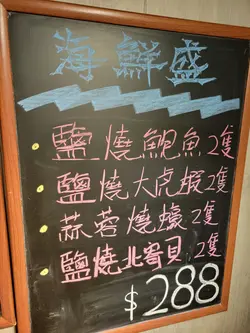 海鮮盛
鹽燒鮑魚2隻
鹽燒大虎蝦2隻
蒜蓉燒蠔2隻
鹽燒北寄貝2隻
$288